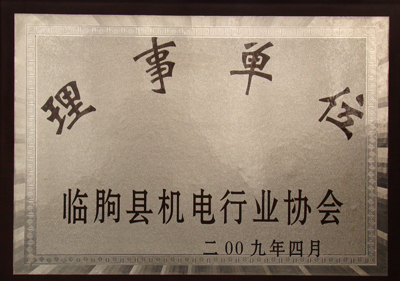 理事单位
临朐县机电行业协会
二00九年四月